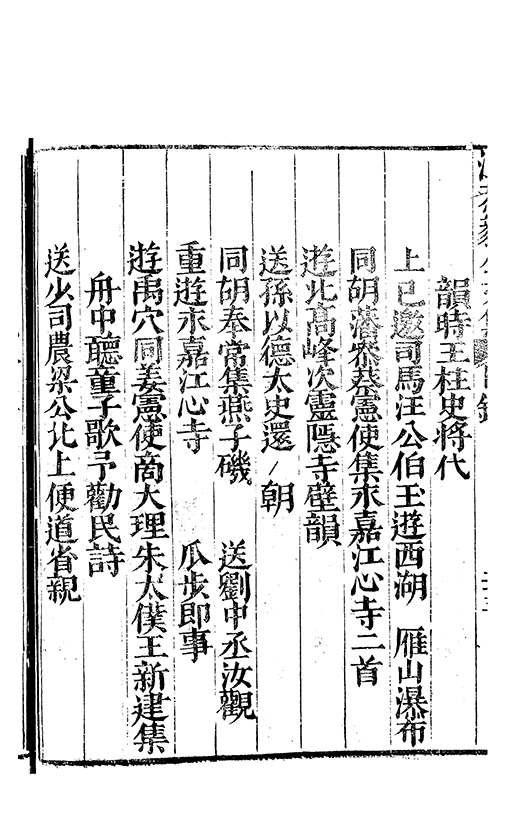 韻時王柱史將代
上巳邀司馬汪公伯玉遊西湖　雁山瀑布
同胡藩參蔡憲使集永嘉江心寺二首
遊北高峰次靈隱寺壁韻
送孫以德太史還朝
同胡奉常集燕子磯　送劉中丞汝觀
重遊永嘉江心寺　瓜步即事
遊禹穴同姜憲使商大理朱太僕王新建集
舟中聽童子歌予勸民詩
送少司農梁公北上便道省親